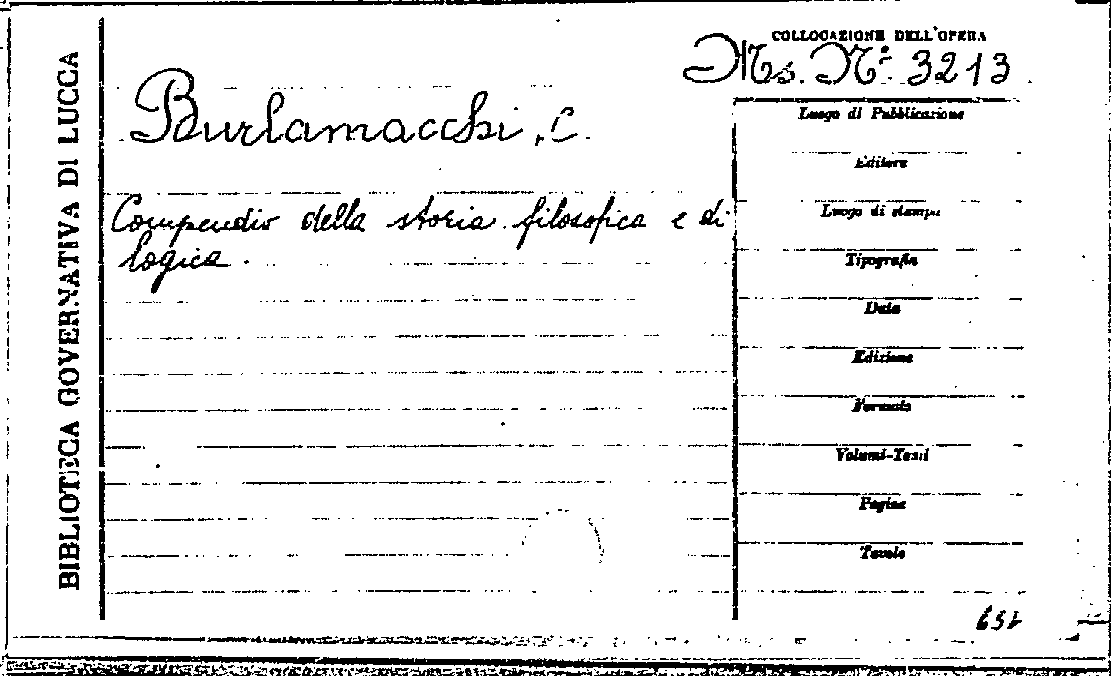 BIBLIOTECA GOVERNATIVA DI LUCCA
COLLOCAZIONE DELL'OPERA
Ms. N° 3213
Burlamacchi, C.
Compendio della storia filosofica e di
logica.
Luogo di Pubblicazione
Editore
Luogo di stampa
Tipografia
Data
Edizione
Formato
Volumi-Tomi
Pagine
Tavole